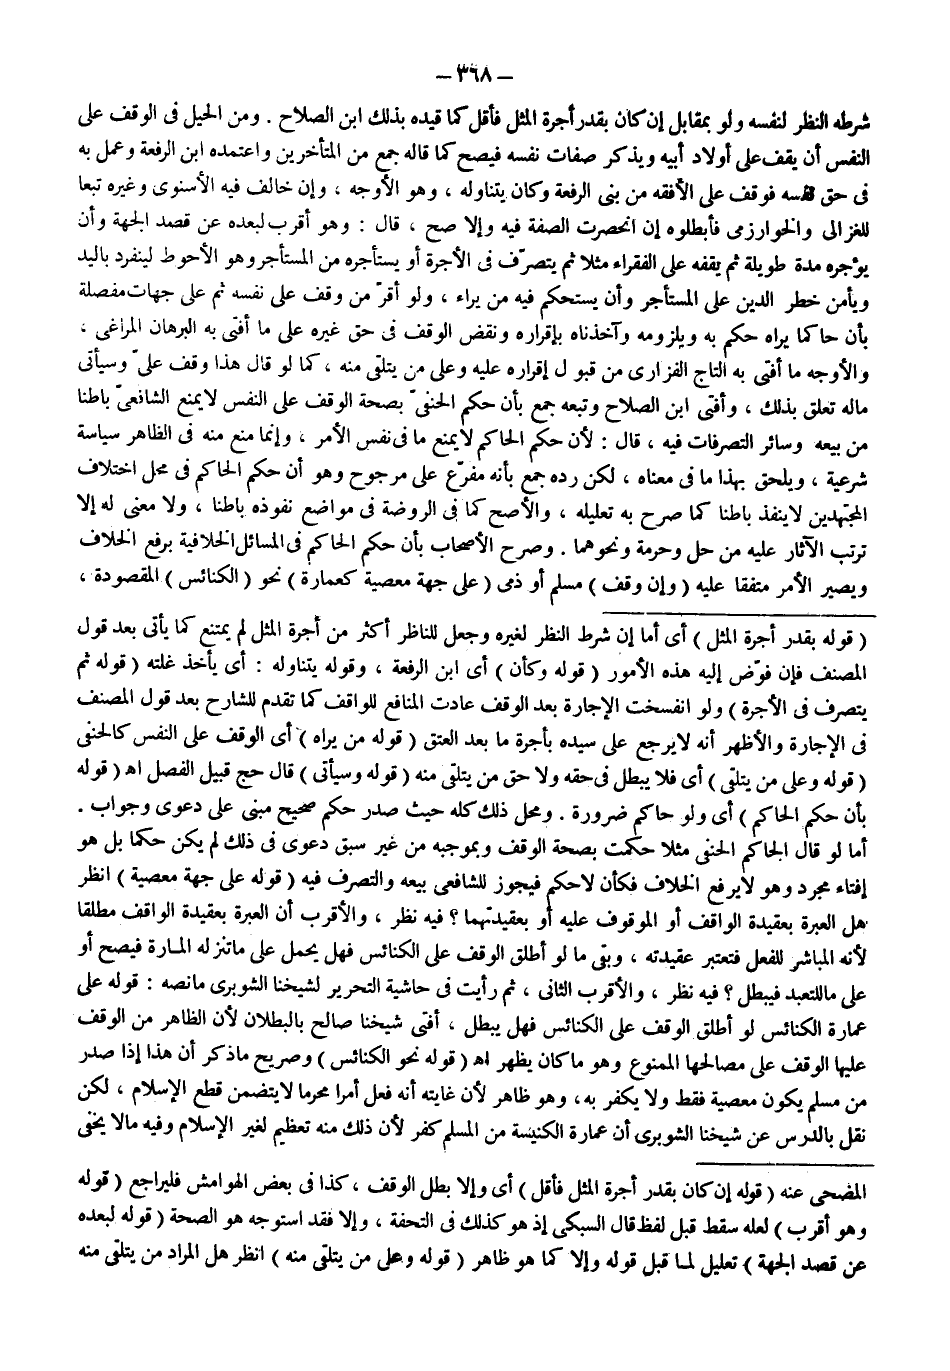 – ٣٦٨ –
شرطه النظر لنفسه ولو بمقابل إن كان بقدر أجرة المثل فأقل كما قيده بذلك ابن الصلاح . ومن الحيل فى الوقف على
النفس أن يقف على أولاد أبيه ويذكر صفات نفسه فيصح كما قاله جمع من المتأخرين واعتمده ابن الرفعة وعمل به
فى حق نفسه فوقف على الأفقه من بنى الرفعة وكان يتناوله ، وهو الأوجه ، وإن خالف فيه الأسنوى وغيره تبعا
للغزالى والخوارزمى فأبطلوه إن انحصرت الصفة فيه وإلا صح ، قال : وهو أقرب لبعده عن قصد الجهة وأن
يؤجره مدة طويلة ثم يقفه على الفقراء مثلا ثم يتصرّف فى الأجرة أو يستأجره من المستأجر وهو الأحوط لينفرد باليد
ويأمن خطر الدين على المستأجر وأن يستحكم فيه من يراه ، ولو أقرّ من وقف على نفسه ثم على جهات مفصلة
بأن حاكما يراه حكم به ويلزومه وآخذناه بإقراره ونقض الوقف فى حق غيره على ما أفتى به البرهان المراغى ،
والأوجه ما أفتى به التاج الفزارى من قبول إقراره عليه وعلى من يتلقى منه ، كما لو قال هذا وقف علىّ وسيأتى
ماله تعلق بذلك ، وأفتى ابن الصلاح وتبعه جمع بأن حكم الحنفىّ بصحة الوقف على النفس لايمنع الشافعىّ باطنا
من بيعه وسائر التصرفات فيه ، قال : لأن حكم الحاكم لايمنع ما فى نفس الأمر ، وإنما منع منه فى الظاهر سياسة
شرعية ، ويلحق بهذا ما فى معناه ، لكن رده جمع بأنه مفرّع على مرجوح وهو أن حكم الحاكم فى محل اختلاف
المجتهدين لاينفذ باطنا كما صرح به تعليله ، والأصح كما فى الروضة فى مواضع نفوذه باطنا ، ولا معنى له إلا
ترتب الآثار عليه من حل وحرمة ونحوهما . وصرح الأصحاب بأن حكم الحاكم فى المسائل الخلافية يرفع الخلاف
ويصير الأمر متفقا عليه ( وإن وقف ) مسلم أو ذمى ( على جهة معصية كعمارة ) نحو ( الكنائس ) المقصودة ،
( قوله بقدر أجرة المثل ) أى أما إن شرط النظر لغيره وجعل للناظر أكثر من أجرة المثل لم يمتنع كما يأتى بعد قول
المصنف فإن فوّض إليه هذه الأمور ( قوله وكأن ) أى ابن الرفعة ، وقوله يتناوله : أى يأخذ غلته ( قوله ثم
يتصرف فى الأجرة ) ولو انفسخت الإجارة بعد الوقف عادت المنافع للواقف كما تقدم للشارح بعد قول المصنف
فى الإجارة والأظهر أنه لايرجع على سيده بأجرة ما بعد العتق ( قوله من يراه ) أى الوقف على النفس كالحنفى
( قوله وعلى من يتلقى ) أى فلا يبطل فى حقه ولا حق من يتلقى منه ( قوله وسيأتى ) قال حج قبيل الفصل اه ( قوله
بأن حكم الحاكم ) أى ولو حاكم ضرورة . ومحل ذلك كله حيث صدر حكم صحيح مبنى على دعوى وجواب .
أما لو قال الحاكم الحنفى مثلا حكمت بصحة الوقف وبموجبه من غير سبق دعوى فى ذلك لم يكن حكما بل هو
إفتاء مجرد وهو لايرفع الخلاف فكأن لاحكم فيجوز للشافعى بيعه والتصرف فيه ( قوله على جهة معصية ) انظر
هل العبرة بعقيدة الواقف أو الموقوف عليه أو بعقيدتهما ؟ فيه نظر ، والأقرب أن العبرة بعقيدة الواقف مطلقا
لأنه المباشر للفعل فتعتبر عقيدته ، وبقى ما لو أطلق الوقف على الكنائس فهل يحمل على ماتنزله المـارة فيصح أو
على ماللتعبد فيبطل ؟ فيه نظر ، والأقرب الثانى ، ثم رأيت فى حاشية التحرير لشيخنا الشوبرى مانصه : قوله على
عمارة الكنائس لو أطلق الوقف على الكنائس فهل يبطل ، أفتى شيخنا صالح بالبطلان لأن الظاهر من الوقف
عليها الوقف على مصالحها الممنوع وهو ما كان يظهر اه ( قوله نحو الكنائس ) وصريح ماذكر أن هذا إذا صدر
من مسلم يكون معصية فقط ولا يكفر به ، وهو ظاهر لأن غايته أنه فعل أمرا محرما لايتضمن قطع الإسلام ، لكن
نقل بالدرس عن شيخنا الشوبرى أن عمارة الكنيسة من المسلم كفر لأن ذلك منه تعظيم لغير الإسلام وفيه مالا يخفى
المضحى عنه ( قوله إن كان بقدر أجرة المثل فأقل ) أى وإلا بطل الوقف ، كذا فى بعض الهوامش فليراجع ( قوله
وهو أقرب ) لعله سقط قبل لفظ قال السبكى إذ هو كذلك فى التحفة ، وإلا فقد استوجه هو الصحة ( قوله لبعده
عن قصد الجهة ) تعليل لما قبل قوله وإلا كما هو ظاهر ( قوله وعلى من يتلقى منه ) انظر هل المراد من يتلقى منه